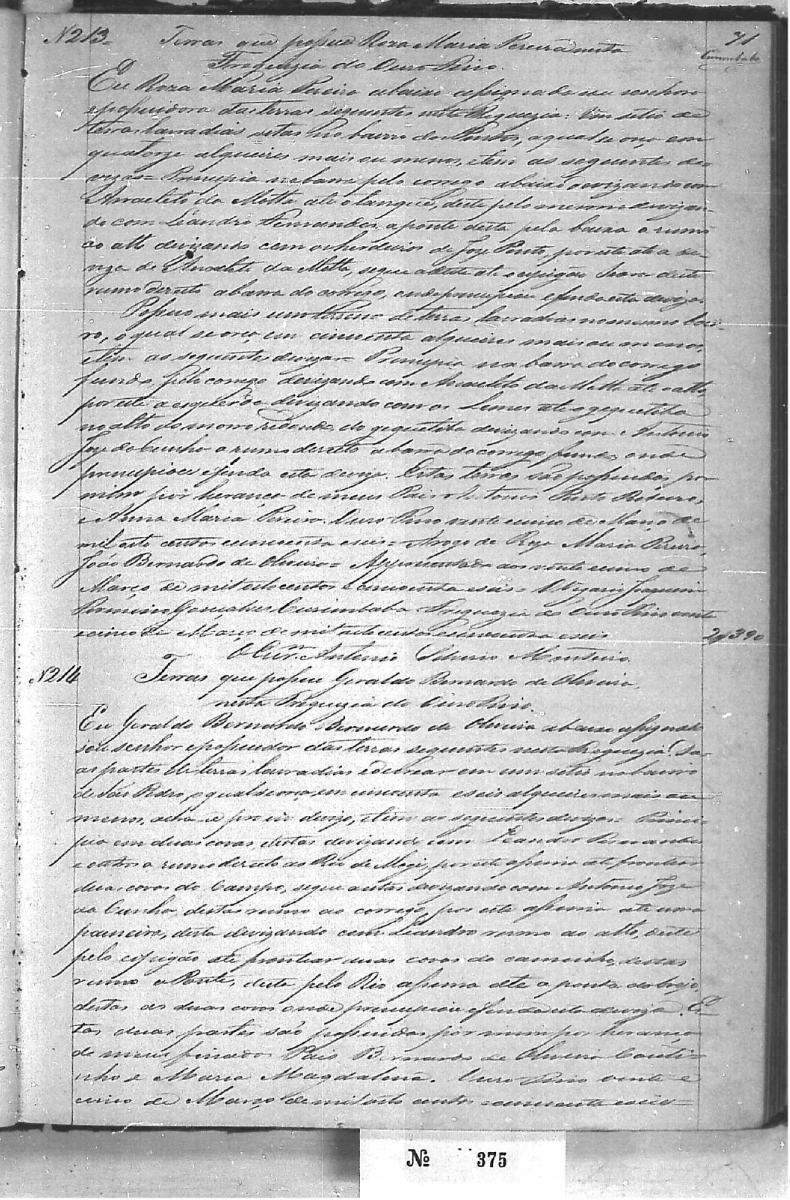 N213 Terras que possue Roza Maria Pereira nesta 31
Freguezia do Ouro Fino. Curimbaba
Eu Roza Maria Pereira abaixo assignada sou senhora
e possuidora das terras seguintes nesta Freguezia: Um sitio de
terras lavradias sitas no bairro dos Pintos, a qual se orça em
quatorze alqueires mais ou menos, e tem as seguintes de-
vizas = Principia na barra pelo corrego abaixo devizando com
Anacleto da Motta até o tanque, deste pelo mesmo devizan-
do com Leandro Fernandes, a ponte desta pela baixa a rumo
ao alto devizando com os herdeiros de Joze Pinto, por este até a de-
viza de Anacleto da Motta, segue a deste até o espigão deste
rumo direto a barra do corrego, onde principiou e finda esta deviza.
Possuo mais um de terras lavradias no mesmo bair-
ro, o qual se orça em cincoenta alqueires mais ou menos,
e tem as seguintes devizas = Principia na barra do corrego
fundo, pelo corrego devizando com Anacleto da Motta até o alto,
por este a esquerda devizando com os Lemes até o gequetiba
no alto do morro redondo, do gequetiba devizando com Antonio
Joze da Cunha a rumo direto a barra do corrego fundo, onde
principiou e finda esta deviza. Estas terras são possuidas por
mim por herança de meus Pais Antonio Pinto Ribeiro,
e Anna Maria Pereira. Ouro Fino vinte cinco de Março de
mil oito centos cincoenta e seis = A rogo de Roza Maria Pereira,
João Bernardo de Oliveira = Appresentado aos vinte cinco de
Março de mil oito centos e cincoenta e seis = O Vigario Joaquim
Firmino Gonçalves Curimbaba Freguezia de Ouro Fino vinte
e cinco de Março de mil oito centos e cincoenta e seis 2$390
O Escr.m Antonio Silverio Monteiro
N214 Terras que possue Geraldo Bernardo de Oliveira,
nesta Freguezia do Ouro Fino.
Eu Geraldo Bernardo Bernardo de Oliveira abaixo assignado
sou senhor e possuidor das terras seguintes nesta Freguezia: Du-
as partes de terras lavradias e de criar em um sitio no bairro
de São Pedro, o qual se orça, em cincoenta e seis alqueires mais ou
menos, e tem as seguintes devizas = Princi-
pia em duas covas destas devizando com Leandro Fernandes
e outros a rumo direto ao Rio de Mogi, por este assima até frontear
duas covas do Campo, segue a estas devizando com Antonio Joze
da Cunha, destas rumo ao corrego, por este assima até uma
paineira, desta devizando com Leandro rumo ao alto, deste
pelo espigão até frontear duas covas do caminho, destas
rumo a Ponte, desta pelo Rio assima até a ponta do brejo,
desta as duas covas onde principiou e finda esta deviza. Es-
tas duas partes são possuidas por mim por herança
de meus finados Pais Bernardo de Oliveira Couti-
nho e Maria Magdalena. Ouro Fino vinte e
cinco de Março de mil oito centos cincoenta e seis =
No 375